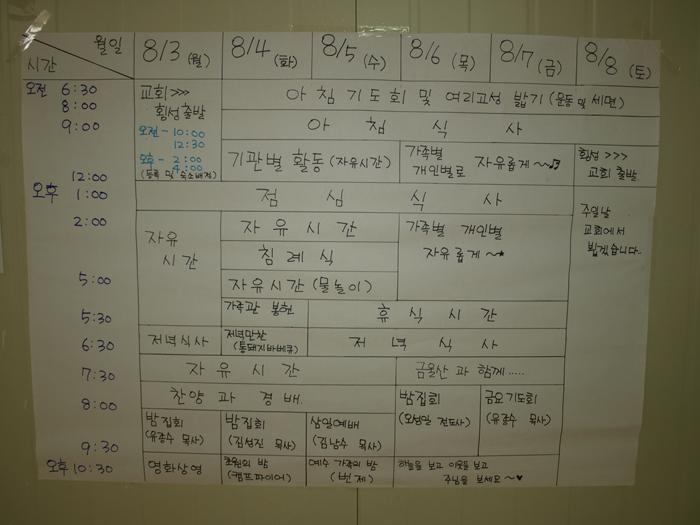 월일
시간
8/3 (월)
8/4 (화)
8/5 (수)
8/6 (목)
8/7 (금)
8/8 (토)
오전 6:30
8:00
9:00
12:00
오후 1:00
2:00
5:00
5:30
6:30
7:30
8:00
9:30
오후 10:30
교회 >>>
횡성출발
오전 - 10:00
12:30
오후 - 2:00
4:00
(등록 및 숙소배정)
아침기도회 및 여리고성 밟기 (운동 및 세면)
아 침 식 사
기관별 활동 (자유시간)
가족별
개인별로 자유롭게 ~~♬
횡성 >>>
교회 출발
점 심 식 사
자유
시간
자 유 시 간
침 례 식
자유시간 (물놀이)
가족별 개인별
자유롭게 ~
주일날
교회에서
뵙겠습니다..
가족관 봉헌
휴 식 시 간
저녁식사
저녁만찬
(통돼지바베큐)
저 녁 식 사
자 유 시 간
금을산 과 함께 .....
찬양 과 경배.
밤집회
(유종수 목사)
밤집회
(김성진 목사)
삼일예배
(김남수 목사)
밤집회
(오성일 전도사)
금요기도회
(유종수 목사)
영화상영
초원의 밤
(캠프파이어)
예수 가족의 밤
(번제)
하늘을 보고 이웃을 보고
주님을 보세요 ~♥